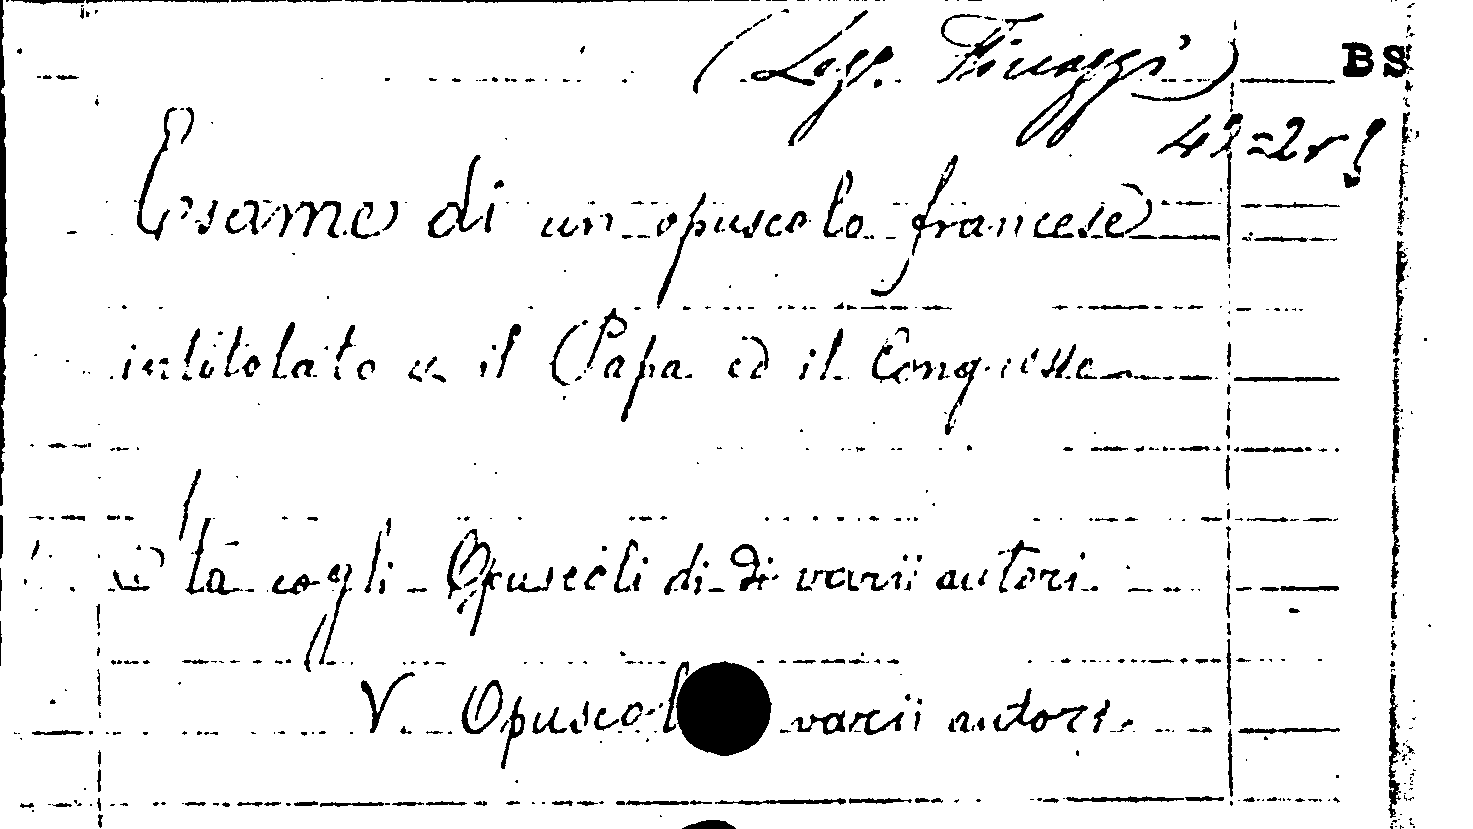 (Legg. Finaggi) BS
Esame di un opuscolo francese
intitolato « il Papa ed il Congresso
Sta cogli Opuscoli di di varii autori.
V. Opuscol varii autori.